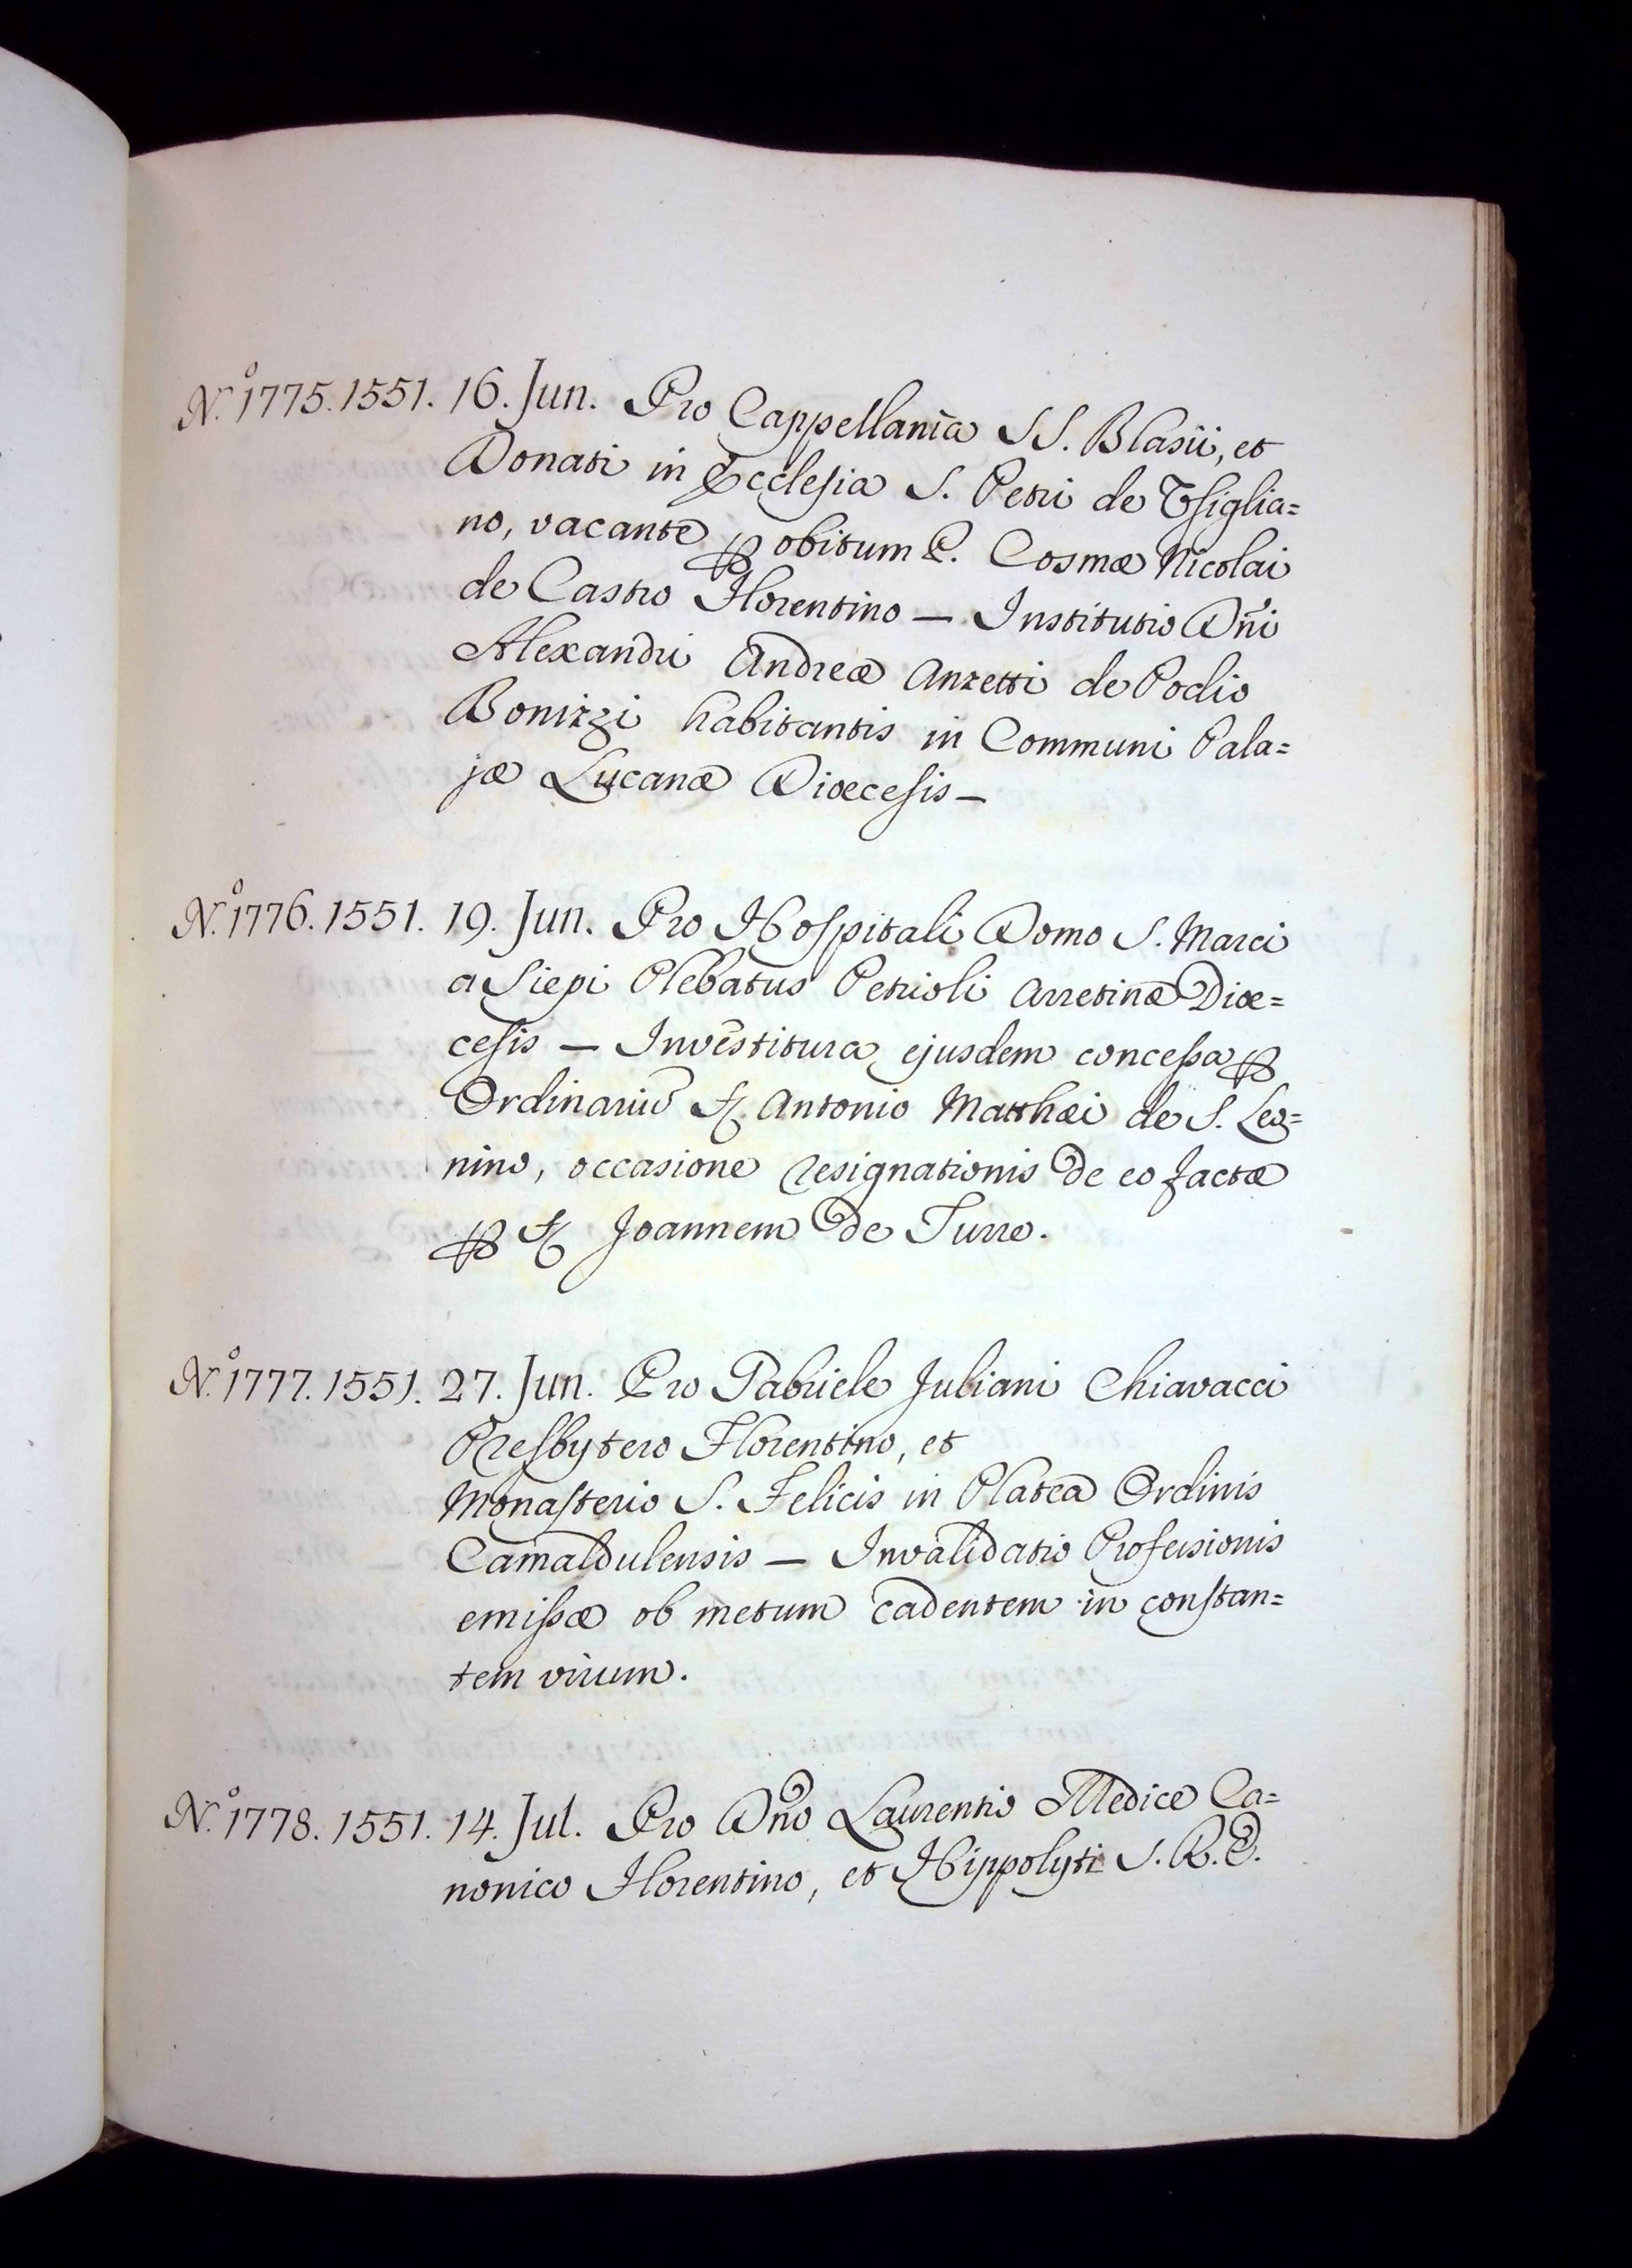 N.º 1775. 1551. 16. Jun. Pro Cappellania SS. Blasii, et
Donati in Ecclesia S. Petri de Usiglia=
no, vacante ꝑ obitum P. Cosmæ Nicolai
de Castro Florentino — Institutio Dñi
Alexandri Andreæ Anzetti de Podio
Bonizzi habitantis in Communi Pala=
jæ Lucanæ Diœcesis —
N.º 1776. 1551. 19. Jun. Pro Hospitali Domo S. Marci
a Siepi Plebatus Petrioli Arretinæ Diœ=
cesis — Investitura ejusdem concessa ꝑ
Ordinariũ Fr. Antonio Matthæi de S. Leo=
nino, occasione resignationis de eo factæ
ꝑ Fr. Joannem de Turre.
N.º 1777. 1551. 27. Jun. Pro Gabriele Juliani Chiavacci
Presbytero Florentino, et
Monasterio S. Felicis in Platea Ordinis
Camaldulensis — Invalidatio Professionis
emissæ ob metum cadentem in constan=
tem virum.
N.º 1778. 1551. 14. Jul. Pro Dño Laurentio Medice Ca=
nonico Florentino, et Hippolyti S. R. E.